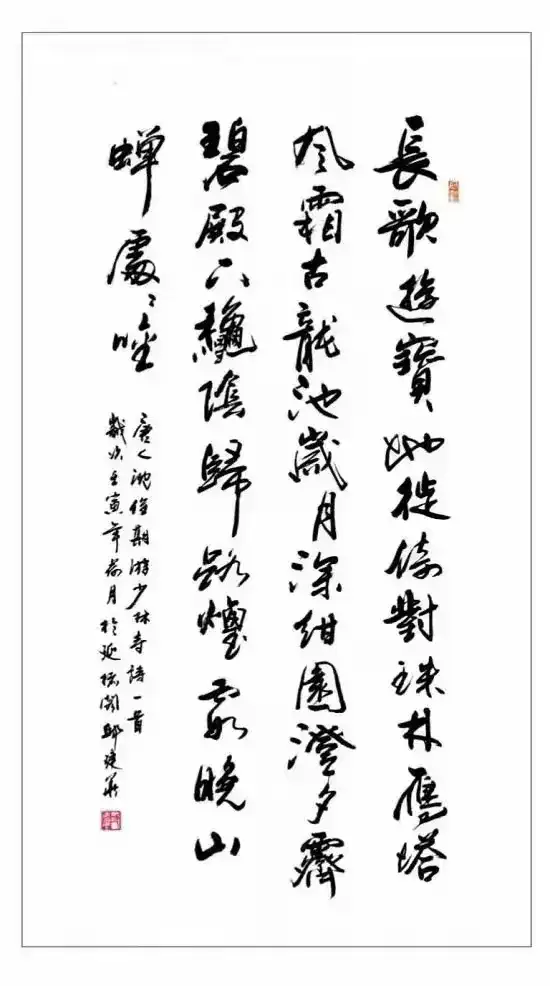 長歌遊寶地徙倚對珠林鴈塔
風霜古龍池歲月深紺園澄夕霽
碧殿下龝陰歸路煙霞晚山
蟬處〻唫
唐人沈佺期游少林寺詩一首
歲次壬寅年荷月於延閣邱建華